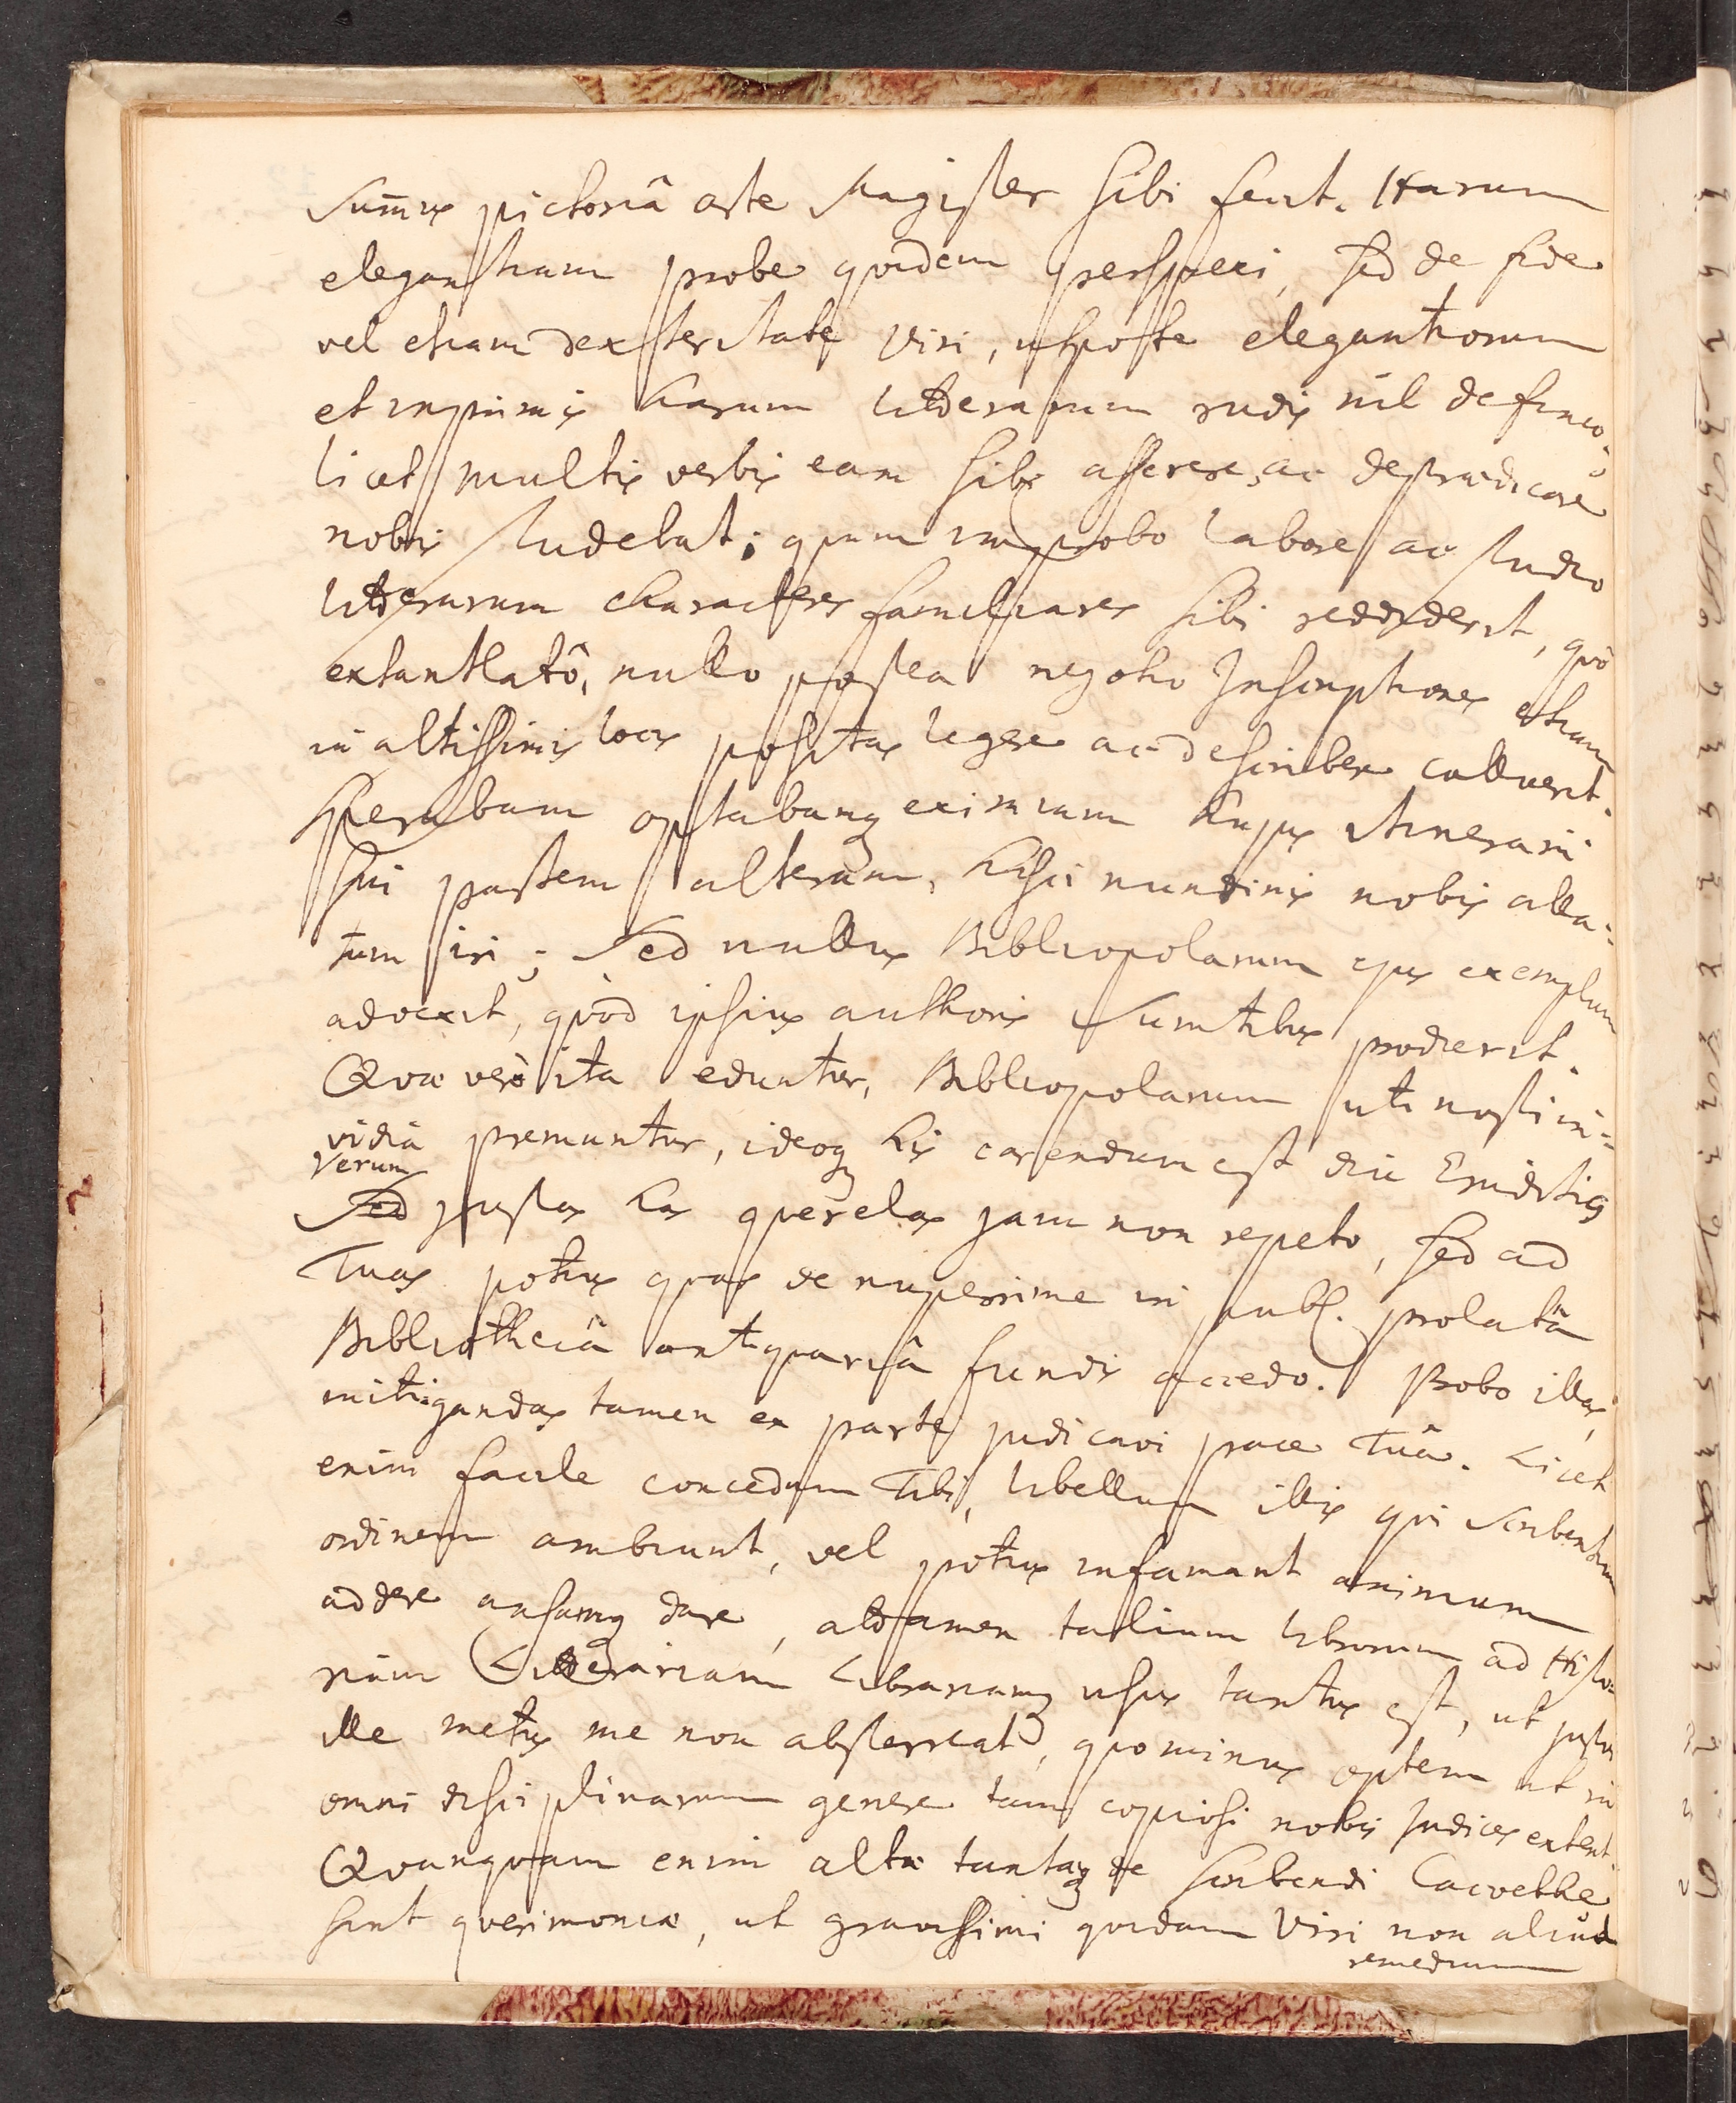 Sum̄us pictoriâ arte Magister sibi fecit. Harum
elegantiam probe quidem perspexi, sed de fide
vel etiam dexteritate Viri, utpote elegantiorum
et inprimis harum litterarum rudis nil definio,
licet multis verbis eam sibi asserere, ac depraedicare
nobis studebat; quum improbo labore ac studio
litterarum characteres familiares sibi reddiderit, quô
exhantlatô, nullo postea negotio Inscriptiones etiam
in altissimis locis positas legere ac describere calluerit.
Sperabam optabamq eximiam hujus itinerarii
sui partem alteram, hisce nundinis nobis alla-
tum iri; Sed nullus Bibliopolarum ejus exemplum
advexit, quòd ipsius authoris Sumtibus prodierit.
Qvae verò ita eduntur, Bibliopolarum uti nosti in-
vidiâ premuntur, ideoq his carendum est diu Eruditis
Verum
Sed justas has querelas jam non repeto, sed ad
Tuas potius quas de nuperrime in publ. prolatâ
Bibliothecâ antiquariâ fundis accedo. Probo illas,
mitigandas tamen ex parte judicavi pace Tuâ. Licet
enim facile concedam Tibi, libellum illis qui Scribentium
ordinem ambiunt, vel potius infamant animum
addere ansamq dare, attamen talium librorum ad Histo-
riam Litterariam Librariamq usus tantus est, ut justus
ille metus me non absterreat, quominus optem ut in
omni disciplinarum genere tam copiosi nobis Indices extent.
Qvanquam enim altae tantaeq de scribendi Cacoethe
sint querimoniae, ut gravissimi quidam Viri non aliud
remedium